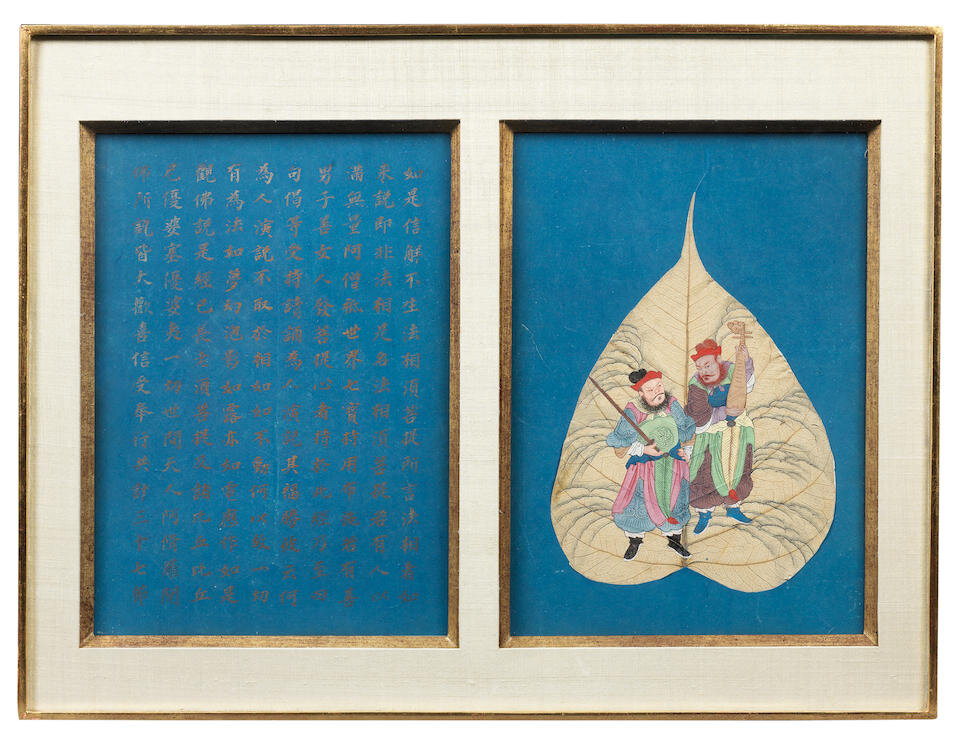 如是信解不生法相須菩提所言法相者如
來說即非法相是名法相須菩提若有人以
滿無量阿僧祇世界七寶持用布施若有善
男子善女人發菩提心者持於此經乃至四
句偈等受持讀誦為人演說其福勝彼云何
為人演說不取於相如如不動何以故一切
有為法如夢幻泡影如露亦如電應作如是
觀佛說是經已長老須菩提及諸比丘比丘
尼優婆塞優婆夷一切世間天人阿修羅聞
佛所說皆大歡喜信受奉行共